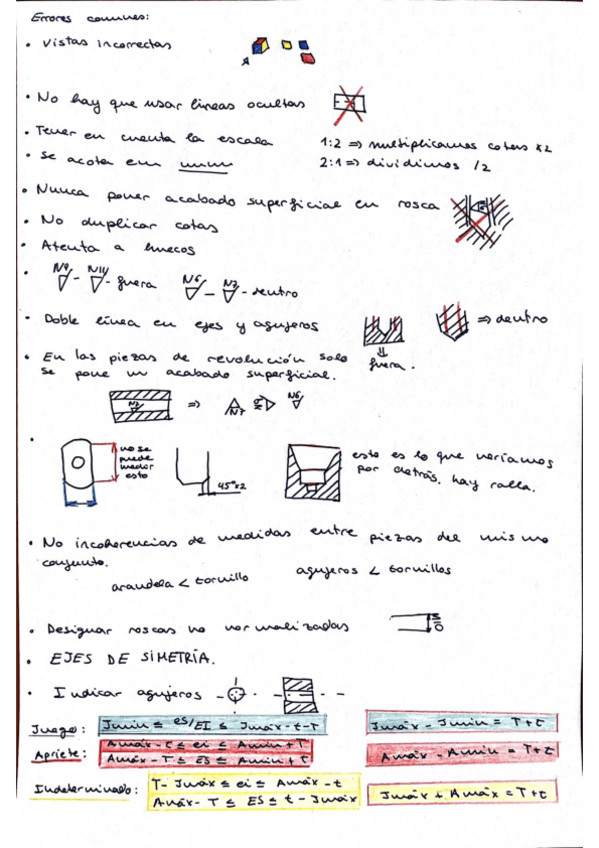 Errores comunes:
• Vistas incorrectas
• No hay que usar líneas ocultas
• Tener en cuenta la escala
1:2 => multiplicamos cotas x2
• Se acota em mm
2:1 => dividimos /2
• Nunca poner acabado superficial en rosca
• No duplicar cotas
• Atenta a huecos
• N9 - N11 - fuera N6 - N7 - dentro
• Doble línea en ejes y agujeros
=> dentro
fuera.
• En las piezas de revolución solo
se pone un acabado superficial.
N7 => N7 N6
no se
puede
medir
esto
45°x2
esto es lo que veríamos
por detrás, hay ralla.
• No incoherencias de medidas entre piezas del mismo
conjunto.
arandela < tornillo
agujeros < tornillos
• Designar roscas no normalizadas
• EJES DE SIMETRÍA.
• Indicar agujeros
Juego: Jmin ≤ es/EI ≤ Jmáx-t-T
Jmáx - Jmin = T+t
Apriete: Amáx-t ≤ ei ≤ Amin+T
Amáx-T ≤ ES ≤ Amin+t
Amáx - Amin = T+t
Indeterminado: T-Jmáx ≤ ei ≤ Amáx-t
Amáx-T ≤ ES ≤ t-Jmáx
Jmáx + Amáx = T+t